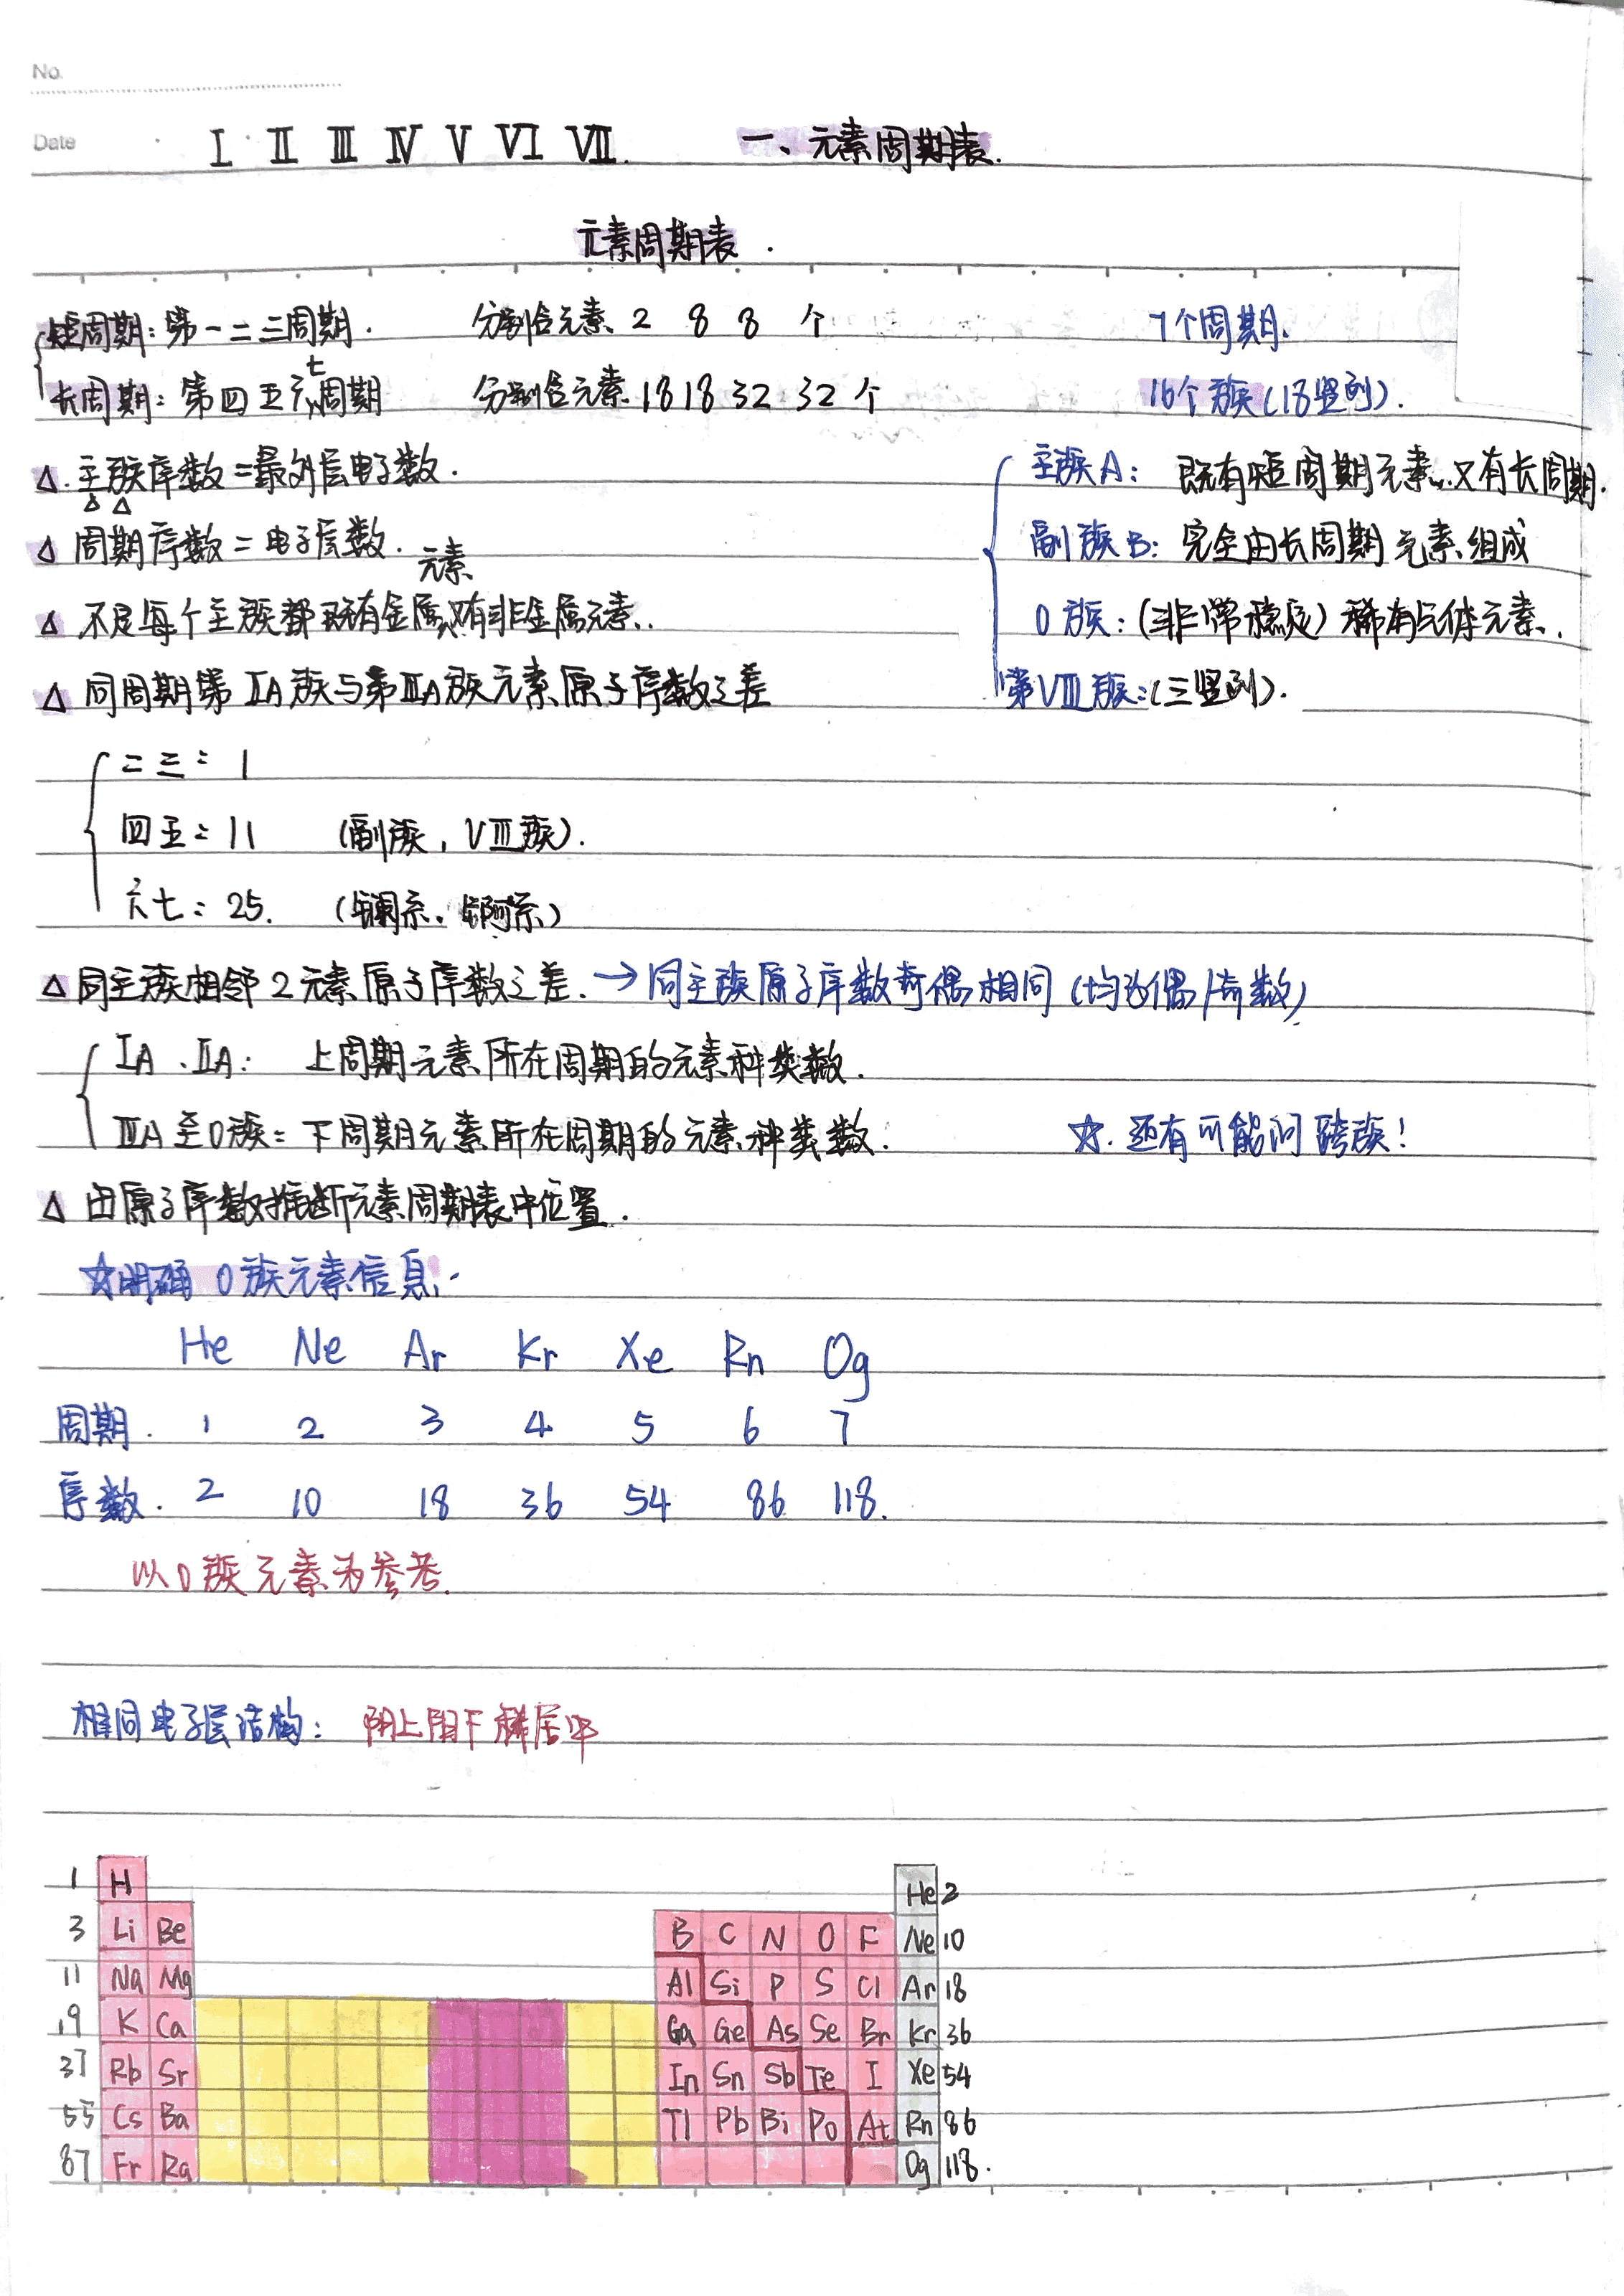 No.
Date
I II III IV V VI VII. 一、元素周期表.
元素周期表.
短周期: 第一二三周期. 分别含元素 2 8 8 个 7个周期.
长周期: 第四五六七周期 分别含元素 18 18 32 32 个 16个族(18竖列).
△. 主族序数=最外层电子数. 主族A: 既有短周期元素, 又有长周期.
△ 周期序数=电子层数. 副族B: 完全由长周期元素组成
△ 不是每个主族都既有金属元素又有非金属元素. 0族: (非常稳定) 稀有气体元素.
△ 同周期第IIA族与第IIIA族元素原子序数之差 第VIII族: (三竖列).
二三: 1
四五: 11 (副族, VIII族).
六七: 25. (镧系, 锕系)
△ 同主族相邻2元素原子序数之差. → 同主族原子序数奇偶相同 (均为偶/奇数)
IA、IIA: 上周期元素所在周期的元素种类数.
IIIA至0族: 下周期元素所在周期的元素种类数. ☆. 还有可能问跨族!
△ 由原子序数推断元素周期表中位置.
☆明确0族元素信息.
He Ne Ar Kr Xe Rn Og
周期. 1 2 3 4 5 6 7
序数. 2 10 18 36 54 86 118.
以0族元素为参考.
相同电子层结构: 阴上阳下稀居中
1 H He 2
3 Li Be B C N O F Ne 10
11 Na Mg Al Si P S Cl Ar 18
19 K Ca Ga Ge As Se Br Kr 36
37 Rb Sr In Sn Sb Te I Xe 54
55 Cs Ba Tl Pb Bi Po At Rn 86
87 Fr Ra Og 118.